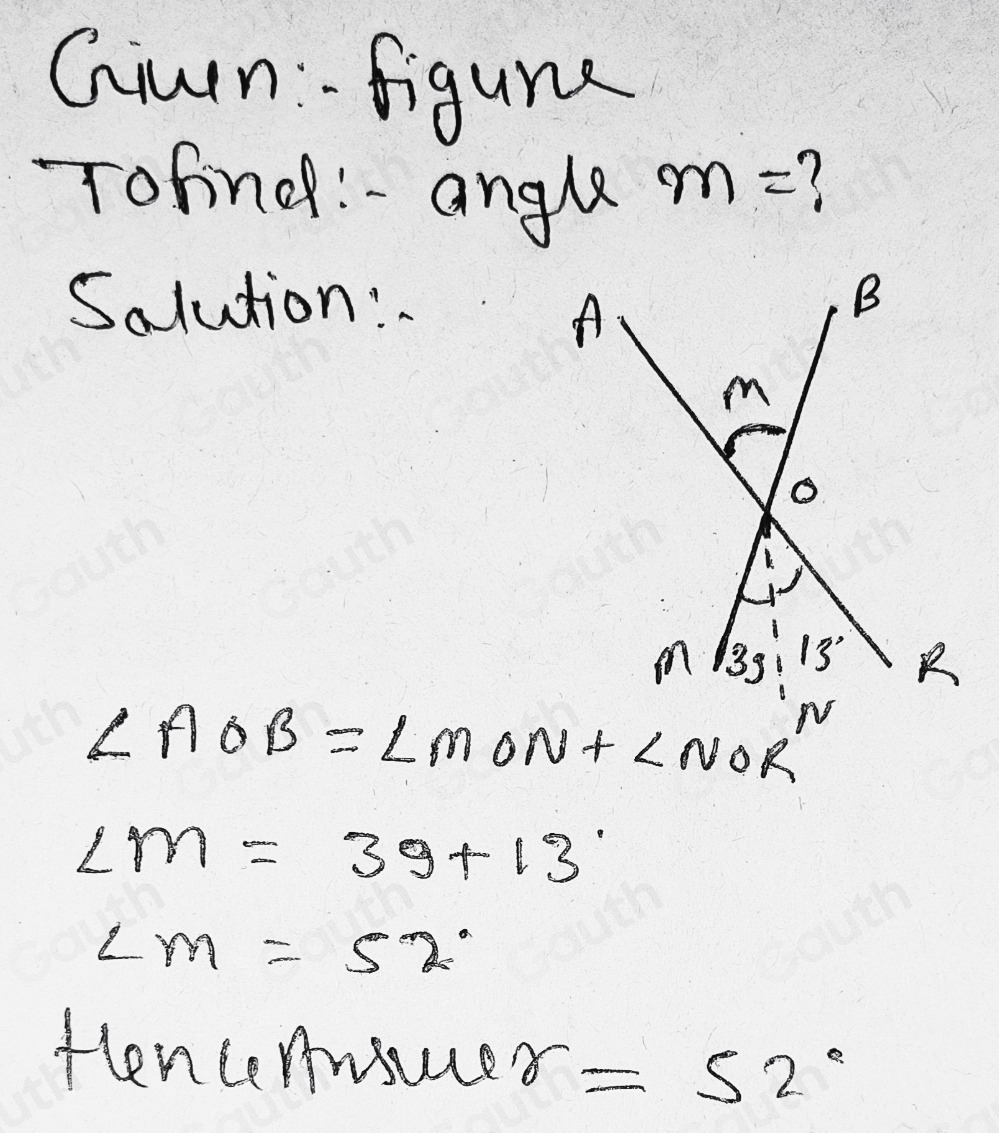 Given:- figure
To find:- angle m =?
Solution:-
A
B
m
O
M 39 13°
R
N
∠AOB = ∠MON + ∠NOR
∠m = 39+13°
∠m = 52°
Hence Answer = 52°